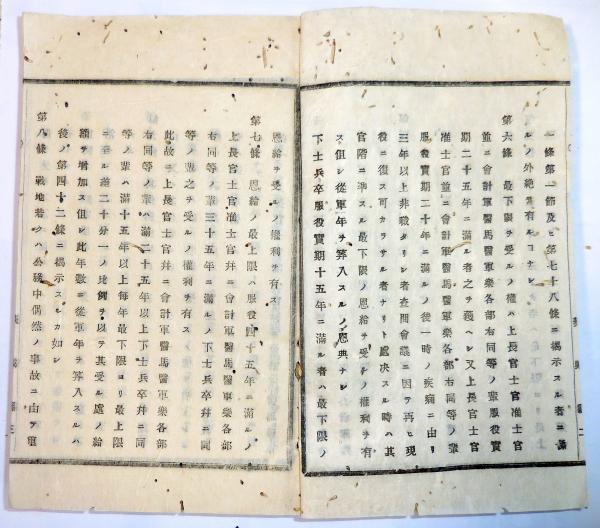 一條第一節及ヒ第七十八條ニ掲示スル者ニ係
ルノ外絶テ有ルコナシ
第六條 最下限ヲ受ルノ權ハ上長官士官准士官
並ニ會計軍醫馬醫軍樂各部右同等ノ輩服役實
期二十五年ニ滿ル者之ヲ獲ヘシ又上長官士官
准士官並ニ會計軍醫馬醫軍樂各部右同等ノ輩
服役實期二十年ニ滿ルノ後一時ノ疾病ニ由リ
三年以上非職タリシ者査問會議ニ因テ再ヒ現
役ニ復ス可カラサル者ナリト處决スル時ハ其
官階ニ準スル最下限ノ恩給ヲ受ルノ權利ヲ有
ス但シ從軍年ヲ筭入スルノ恩典ナシ
下士兵卒服役實期十五年ニ滿ル者ハ最下限ノ
恩給ヲ受ルノ權利ヲ有ス
第七條 恩給ノ最上限ハ服役四十五年ニ滿ルノ
上長官士官准士官幷ニ會計軍醫馬醫軍樂各部
右同等ノ輩三十五年ニ滿ルノ下士兵卒幷ニ同
等ノ輩之ヲ受ルノ權利ヲ有ス
此故ニ上長官士官幷ニ會計軍醫馬醫軍樂各部
右同等ノ輩ハ滿二十五年以上下士兵卒幷ニ同
等ノ輩ハ滿十五年以上每年最下限ヨリ最上限
ニ至ル差二十分一ノ比例ヲ以テ其受ル處ノ給
額ヲ增加ス但シ此年數ニ從軍年ヲ筭入スルハ
後ノ第四十二條ニ掲示スルカ如シ
第八條 戰地若クハ公務中偶然ノ事故ニ由ヲ